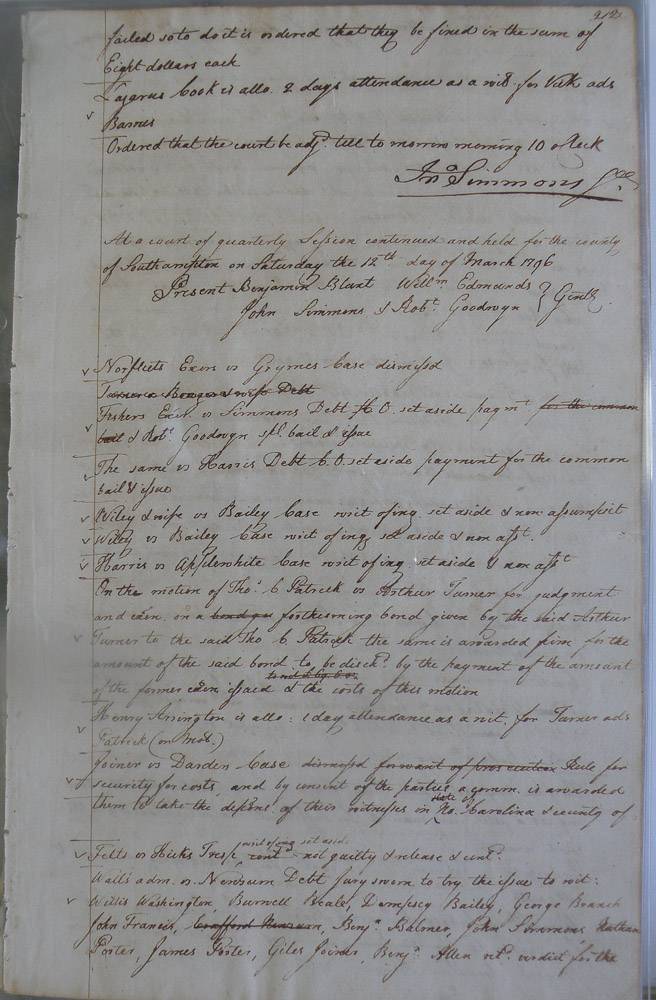 212
failed so to do it is ordered that they be fined in the sum of
Eight dollars each
Lazarus Cook is allo. 2 days attendance as a wit. for Valk ads
Barnes
Ordered that the court be adjd. till to morrow morning 10 oClock
Jno Simmons
At a court of quarterly Session continued and held for the county
of Southampton on Saturday the 12th day of March 1796
Present Benjamin Blunt Willm Edmunds } Gentl.
John Simmons & Robt. Goodwyn
Norfleets Exors vs Grymes Case dismissd
Turner & wife Debt
Fishers Exor. vs Simmons Debt C. O. set aside paymt for the common
bail & Robt. Goodwyn spl. bail & issue
The same vs Harris Debt C. O. set aside payment for the common
bail & issue
Wiley & wife vs Bailey Case writ of inq set aside & non assumpsit
Wiley vs Bailey Case writ of inq set aside & non asst.
Harris vs Applewhite Case writ of inq. set aside & non asst
On the motion of Tho. C Patrick vs Arthur Turner for judgment
and exon. on a forthcoming bond given by the said Arthur
Turner to the said Tho. C. Patrick the same is awarded him for the
amount of the said bond to be dischd. by the payment of the amount
of the former exon issued & the costs of this motion
Henry Arrington is allo: 1 day attendance as a wit. for Turner ads
Patrick (on mot.)
Joiner vs Darden Case dismissd for want of prosecution Rule for
security for costs, and by consent of the parties a comm. is awarded
them to take the depons. of their witnesses in State of No. Carolina & county of
Felts vs Hicks Tresp. writ of inq set aside contd. not guilty & release & contd.
Wails adm. vs. Newsum Debt Jury sworn to try the issue to wit:
Willis Washington, Burwell Beale, Dempsey Bailey, George Branch
John Francis, Crafford Newsum, Benjn. Balmer, John Simmons Nathan
Porter, James Porter, Giles Joiner, Benjn. Allen retd. verdict for the